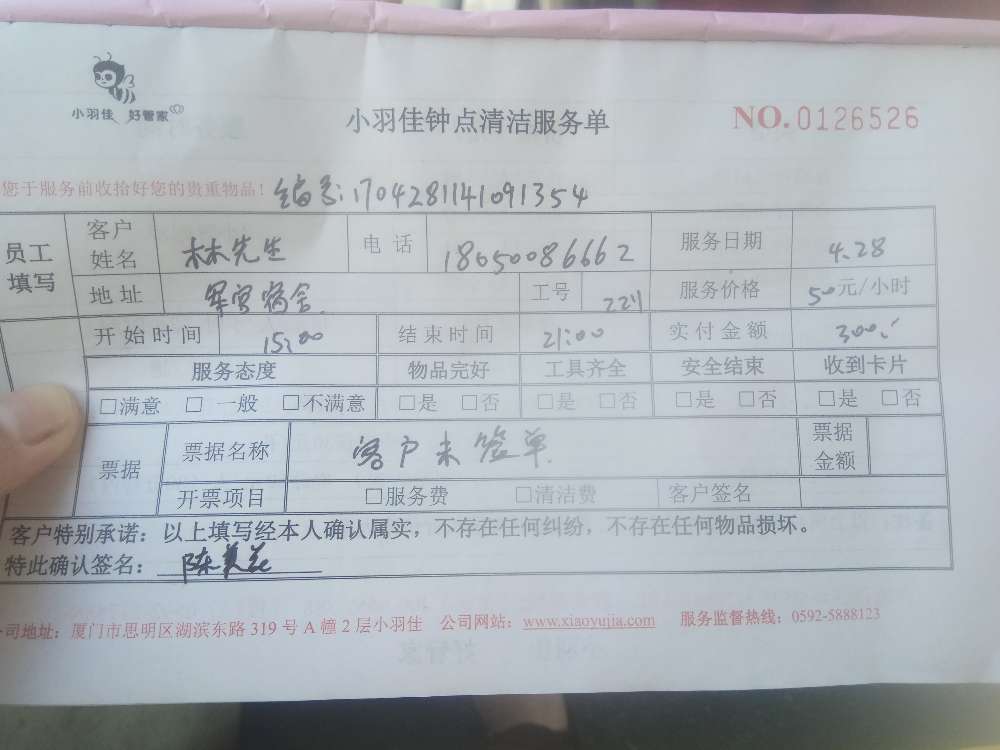 小羽佳 好管家
小羽佳钟点清洁服务单
NO.0126526
您于服务前收拾好您的贵重物品！ 编号:1704281141091354
员工填写 客户姓名 林先生 电话 18650086662 服务日期 4.28
地址 军宫宿舍 工号 2211 服务价格 50元/小时
开始时间 15:00 结束时间 21:00 实付金额 300.
服务态度 物品完好 工具齐全 安全结束 收到卡片
□满意 □一般 □不满意 □是 □否 □是 □否 □是 □否 □是 □否
票据 票据名称 客户未签单 票据金额
开票项目 □服务费 □清洁费 客户签名
客户特别承诺：以上填写经本人确认属实，不存在任何纠纷，不存在任何物品损坏。
特此确认签名：陈美花
司地址：厦门市思明区湖滨东路 319 号 A 幢 2 层小羽佳 公司网站：www.xiaoyujia.com 服务监督热线：0592-5888123